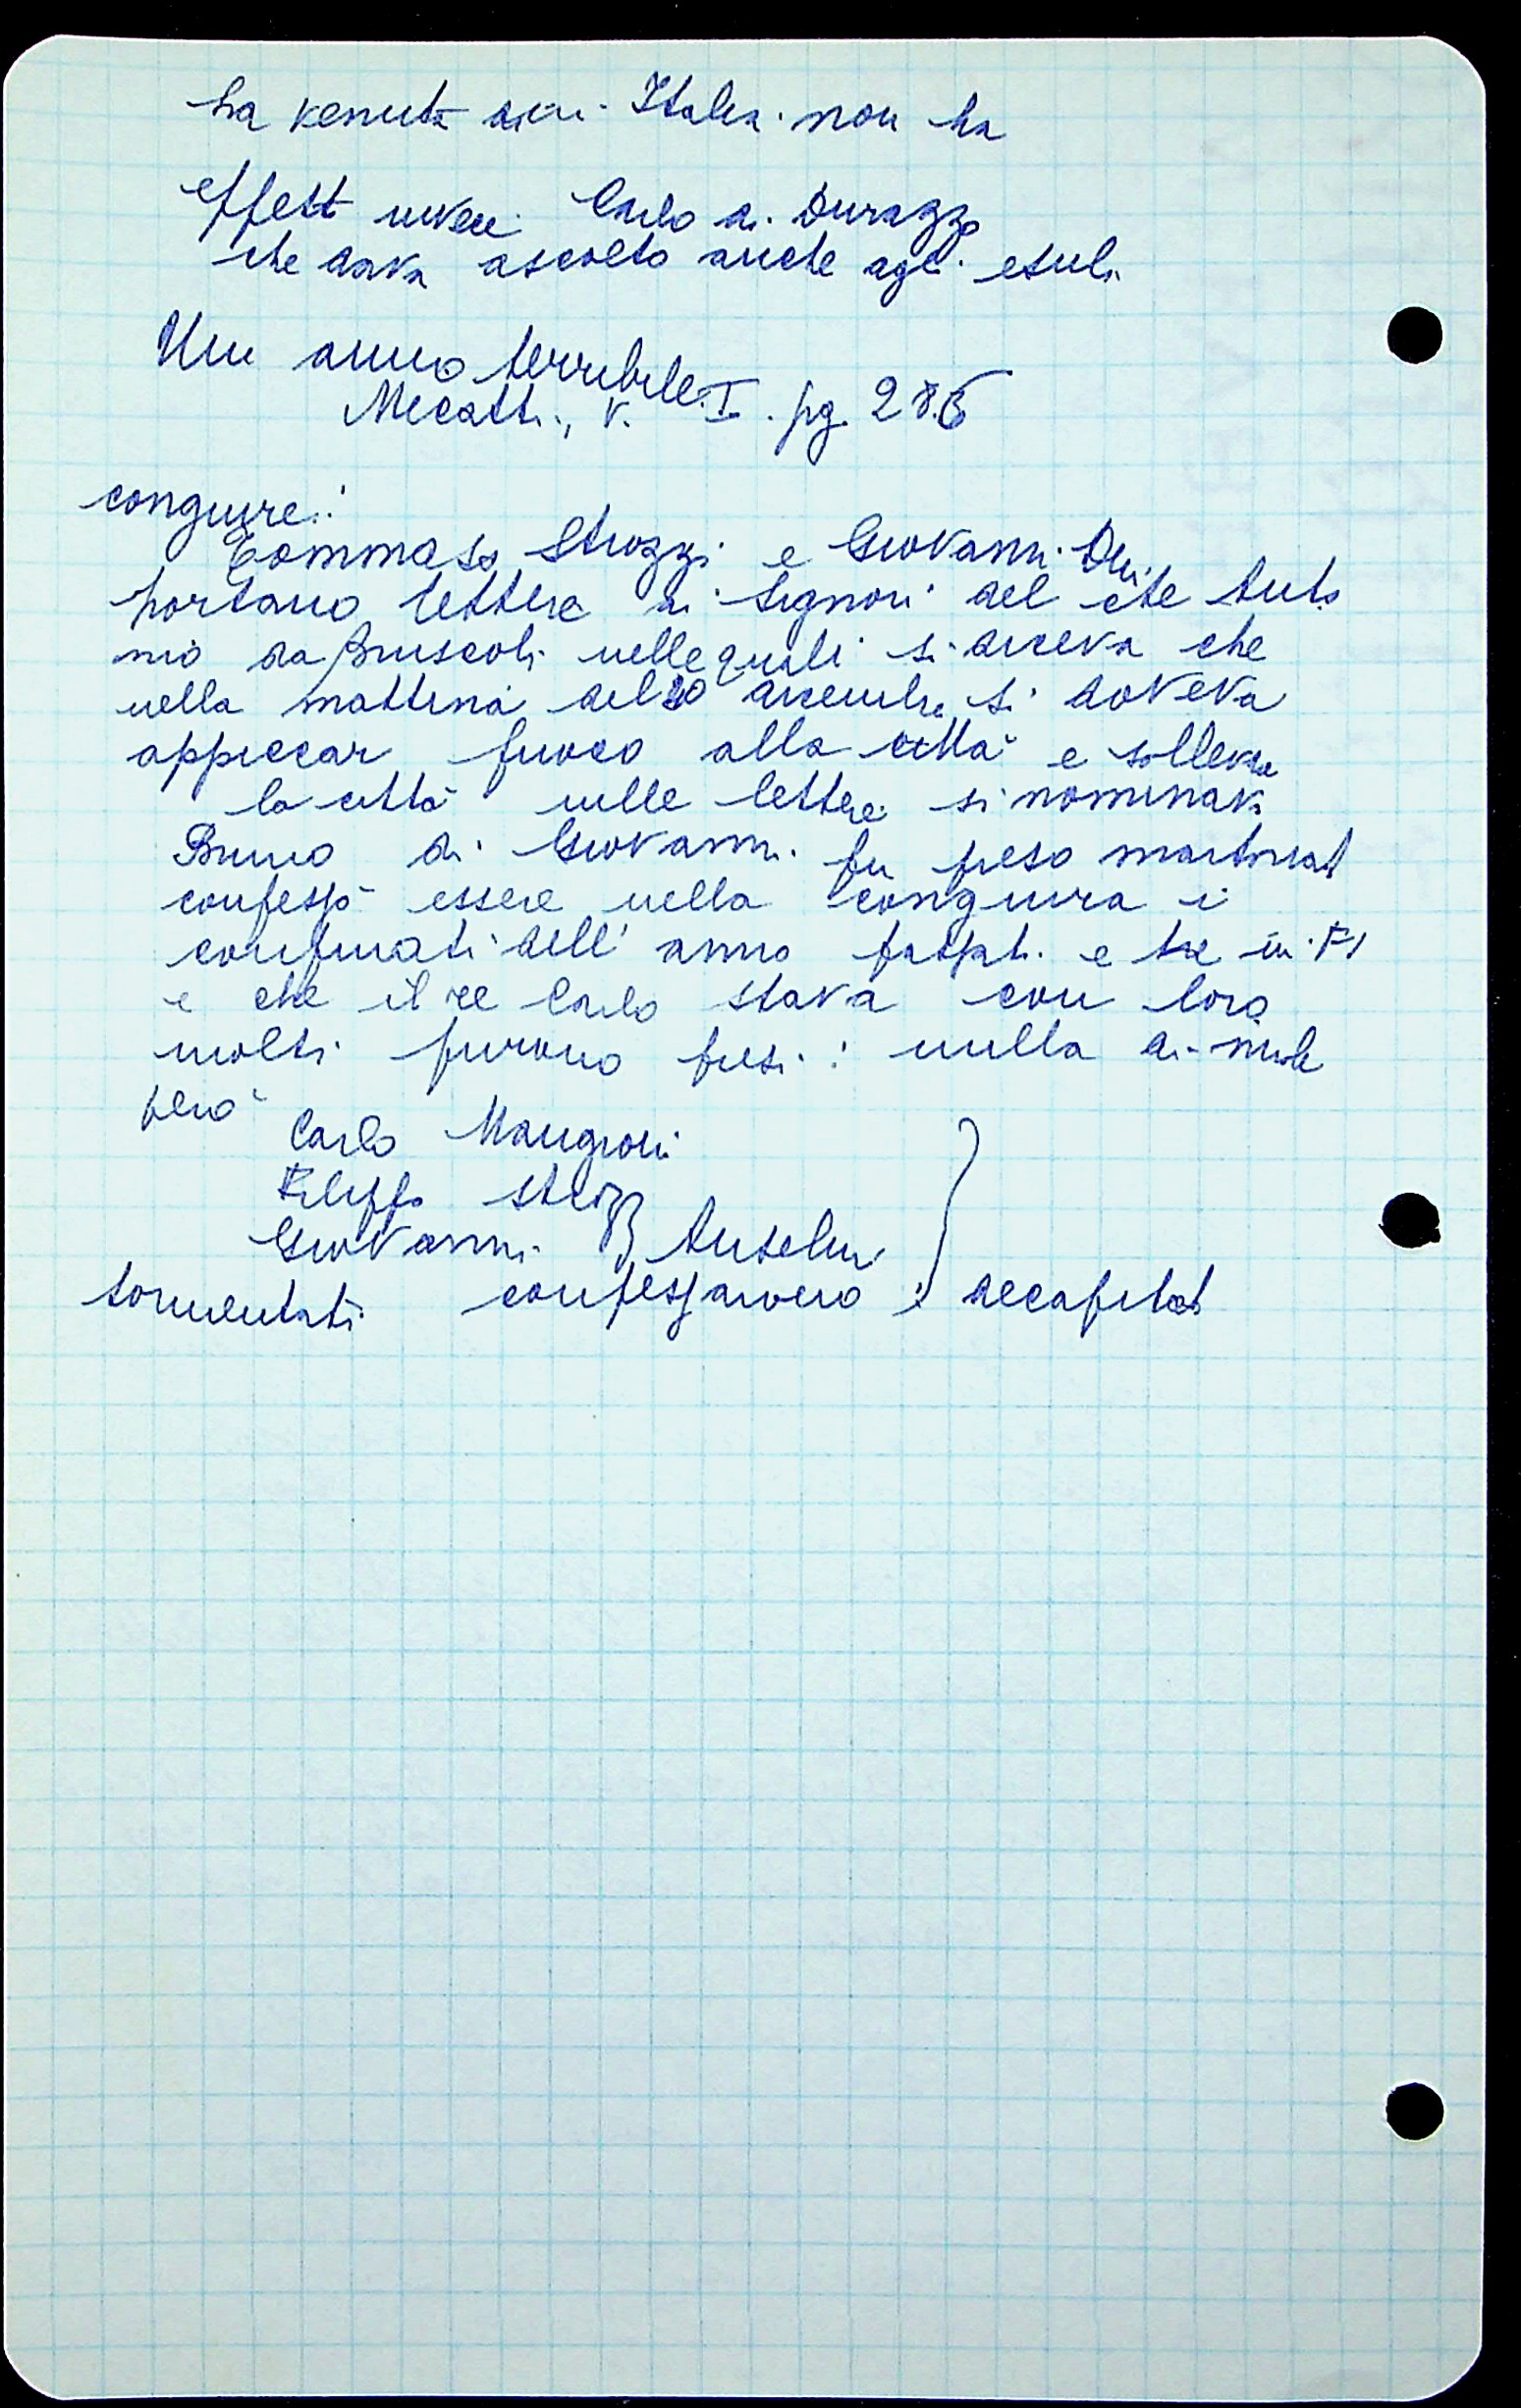 la venuta in Italia non ha
effett invece Carlo di Durazzo
che dava ascolto anche agli esuli
Un anno terribile
Mecatti, v. I. pg. 286
congiure:
Tommaso Strozzi e Giovanni Dei
portano lettere ai Signori del che Anto
nio da Bruscoli nelle quali si diceva che
nella mattina del dicembre si doveva
appiccar fuoco alla città e sollevare
la città nelle lettere si nominava
Bruno di Giovanni fu preso martoriat
confessò essere nella congiura i
confinati dell' anno e tre in FI
e che il re Carlo stava con loro
molti furono presi: nulla di
però
Carlo Mangioni
Filippo Strozzi
Giovanni Anselmi
tormentati confessarono decapitati